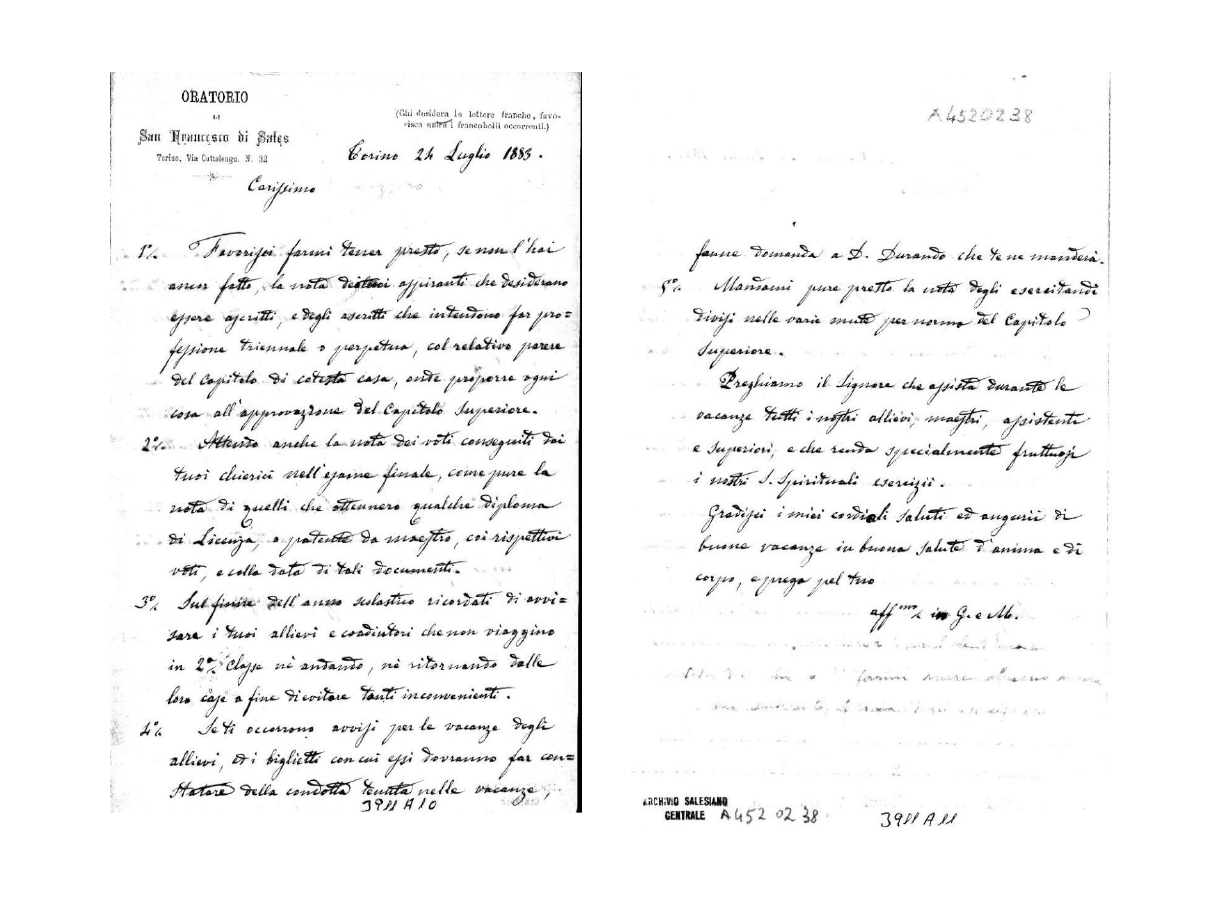 ORATORIO
DI
San Francesco di Sales
Torino, Via Cottolengo, N. 32
(Chi desidera le lettere franche, favo-
risca unire i francobolli occorrenti.)
Torino 24 Luglio 1885.
Carissimo
1°/. Favorisci farmi tener presto, se non l'hai
ancor fatto, la nota degli aspiranti che desiderano
essere ascritti, e degli ascritti che intendono far pro=
fessione triennale o perpetua, col relativo parere
del Capitolo di cotesta casa, onde proporre ogni
cosa all'approvazione del Capitolo Superiore.
2°/. Attendo anche la nota dei voti conseguiti dai
tuoi chierici nell'esame finale, come pure la
nota di quelli che ottennero qualche diploma
di Licenza, o patente da maestro, coi rispettivi
voti, e colla data di tali documenti.
3°/. Sul finire dell'anno scolastico ricordati di avvi=
sare i tuoi allievi e coadiutori che non viaggino
in 2ª/. Classe nè andando, nè ritornando dalle
loro case a fine di evitare tanti inconvenienti.
4°/. Se ti occorrono avvisi per le vacanze degli
allievi, ed i biglietti con cui essi dovranno far con=
statare della condotta tenuta nelle vacanze,
3911 A 10
A4520238
fanne domanda a D. Durando che te ne manderà.
5°/. Mandami pure presto la nota degli esercitandi
divisi nelle varie mute per norma del Capitolo
Superiore.
Preghiamo il Signore che assista durante le
vacanze tutti i nostri allievi, maestri, assistenti
e Superiori, e che renda specialmente fruttuosi
i nostri S. Spirituali esercizii.
Gradisci i miei cordiali saluti ed augurii di
buone vacanze in buona salute d'anima e di
corpo, e prega pel tuo
aff.mo/. in G. e M.
ARCHIVIO SALESIANO
CENTRALE A452 02 38
3911 A 11